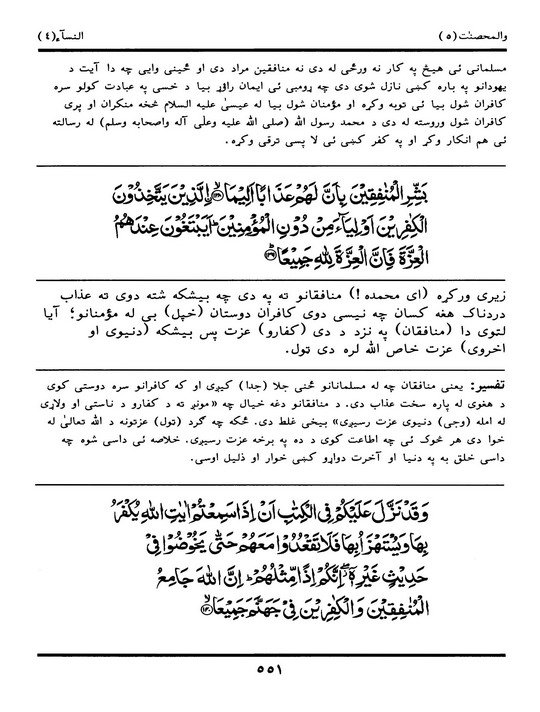 والمحصنٰت(٥) النسآء(٤)
مسلمانی ئی هیڅ په کار نه ورځی له دی نه منافقین مراد دی او ځینی وایی چه دا آیت د
یهودانو په باره کښی نازل شوی دی چه ړومبی ئی ایمان راؤړ بیا د خسی په عبادت کولو سره
کافران شول بیا ئی توبه وکړه او مؤمنان شول بیا له عیسیٰ علیه السلام څخه منکران او پری
کافران شول وروسته له دی د محمد رسول الله (صلی الله علیه وعلٰی آله واصحابه وسلم) له رسالته
ئی هم انکار وکړ او په کفر کښی ئی لا پسی ترقی وکړه.
بَشِّرِ الْمُنٰفِقِيْنَ بِاَنَّ لَهُمْ عَذَابًا اَلِيْمًا ۙ﴿١٣٨﴾ اِلَّذِيْنَ يَتَّخِذُوْنَ
الْكٰفِرِيْنَ اَوْلِيَآءَ مِنْ دُوْنِ الْمُؤْمِنِيْنَ ؕ اَيَبْتَغُوْنَ عِنْدَهُمُ
الْعِزَّةَ فَاِنَّ الْعِزَّةَ لِلّٰهِ جَمِيْعًا ؕ﴿١٣٩﴾
زیری ورکړه (ای محمده !) منافقانو ته په دی چه بیشکه شته دوی ته عذاب
دردناک هغه کسان چه نیسی دوی کافران دوستان (خپل) بی له مؤمنانو؛ آیا
لتوی دا (منافقان) په نزد د دی (کفارو) عزت پس بیشکه (دنیوی او
اخروی) عزت خاص الله لره دی ټول.
تفسیر: یعنی منافقان چه له مسلمانانو ځنی جلا (جدا) کیږی او که کافرانو سره دوستی کوی
د هغوی له پاره سخت عذاب دی. د منافقانو دغه خیال چه «مونږ ته د کفارو د ناستی او ولاړی
له امله (وجی) دنیوی عزت رسیږی» بیخی غلط دی. ځکه چه ګرد (ټول) عزتونه د الله تعالیٰ له
خوا دی هر څوک ئی چه اطاعت کوی د ده په برخه عزت رسیږی. خلاصه ئی داسی شوه چه
داسی خلق به په دنیا او آخرت دواړو کښی خوار او ذلیل اوسی.
وَقَدْ نَزَّلَ عَلَيْكُمْ فِی الْكِتٰبِ اَنْ اِذَا سَمِعْتُمْ اٰيٰتِ اللّٰهِ يُكْفَرُ
بِهَا وَيُسْتَهْزَاُ بِهَا فَلَا تَقْعُدُوْا مَعَهُمْ حَتّٰی يَخُوْضُوْا فِیْ
حَدِيْثٍ غَيْرِهٖۤ ۖ اِنَّكُمْ اِذًا مِّثْلُهُمْ ؕ اِنَّ اللّٰهَ جَامِعُ
الْمُنٰفِقِيْنَ وَالْكٰفِرِيْنَ فِیْ جَهَنَّمَ جَمِيْعًا ۙ﴿١٤٠﴾
٥٥١